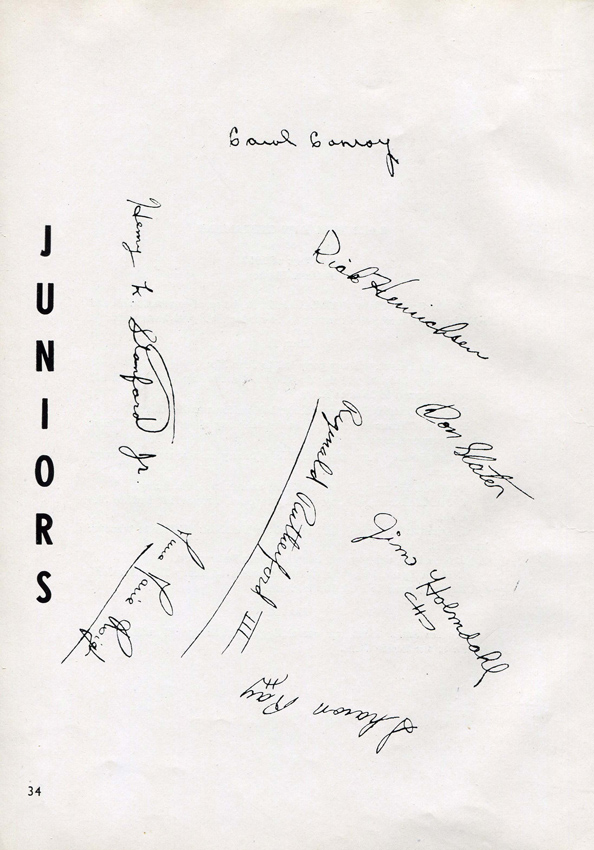 Carol Conroy
JUNIORS
Henry K. Stanford Jr.
Rick Heinrichsen
Don Slater
Reginald Rutherford III
Jim Holmdahl
CHS
Marie
Sharon Ray
34